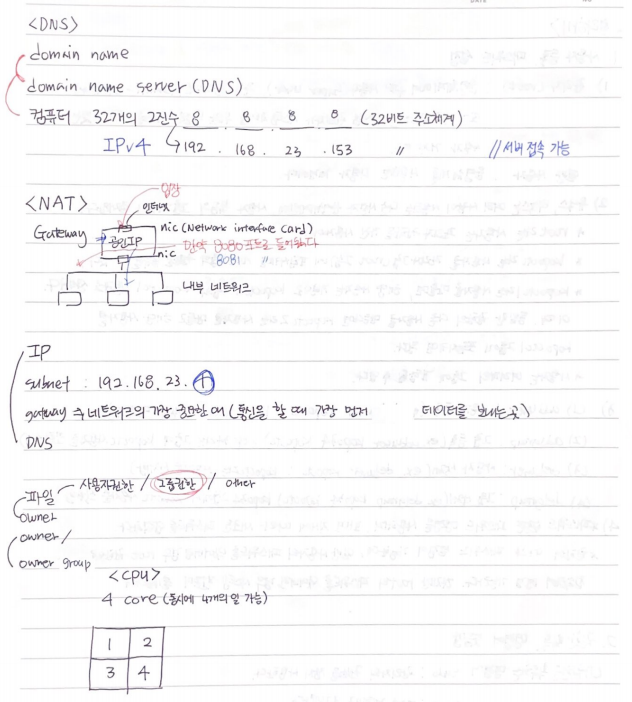 <DNS>
domain name
domain name server (DNS)
컴퓨터 32개의 2진수 8 . 8 . 8 . 8 (32비트 주소체계)
IPv4 192 . 168 . 23 . 153 〃 //서버 접속 가능
<NAT>
입장
인터넷
Gateway 공인IP nic (Network interface card)
만약 8080포트로 들어왔다
nic 8081 〃
내부 네트워크
IP
subnet : 192. 168. 23. 1
gateway → 네트워크의 가장 중요한 애 (통신을 할 때 가장 먼저 데이터를 보내는 곳)
DNS
파일 사용자권한 / 그룹권한 / other
owner
owner /
owner group
<CPU>
4 core (동시에 4개의 일 가능)
1 2
3 4